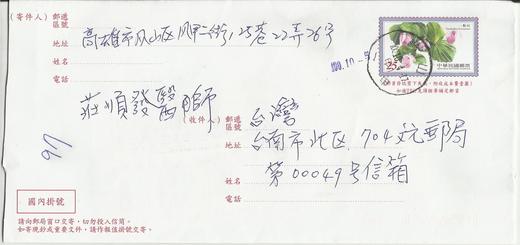 (寄件人)
郵遞區號
地址
高雄市鳳山区凤甲一街125巷22弄26号
姓名
電話
中華民國郵票
25
莊順發醫師
(收件人)
郵遞區號
台灣
地址
台南市北区704文元郵局
第00049号信箱
姓名
電話
97
國內掛號
請向郵局窗口交寄,切勿投入信筒。
如寄現鈔或重要文件,請作報值掛號交寄。